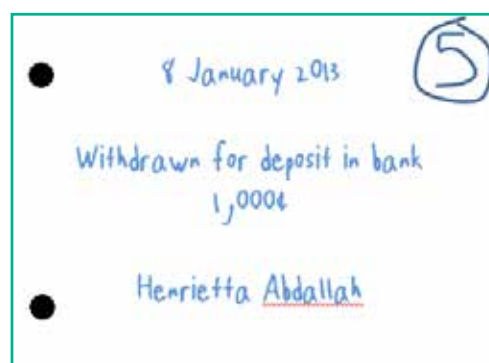 8 January 2013
5
Withdrawn for deposit in bank
1,000¢
Henrietta Abdallah